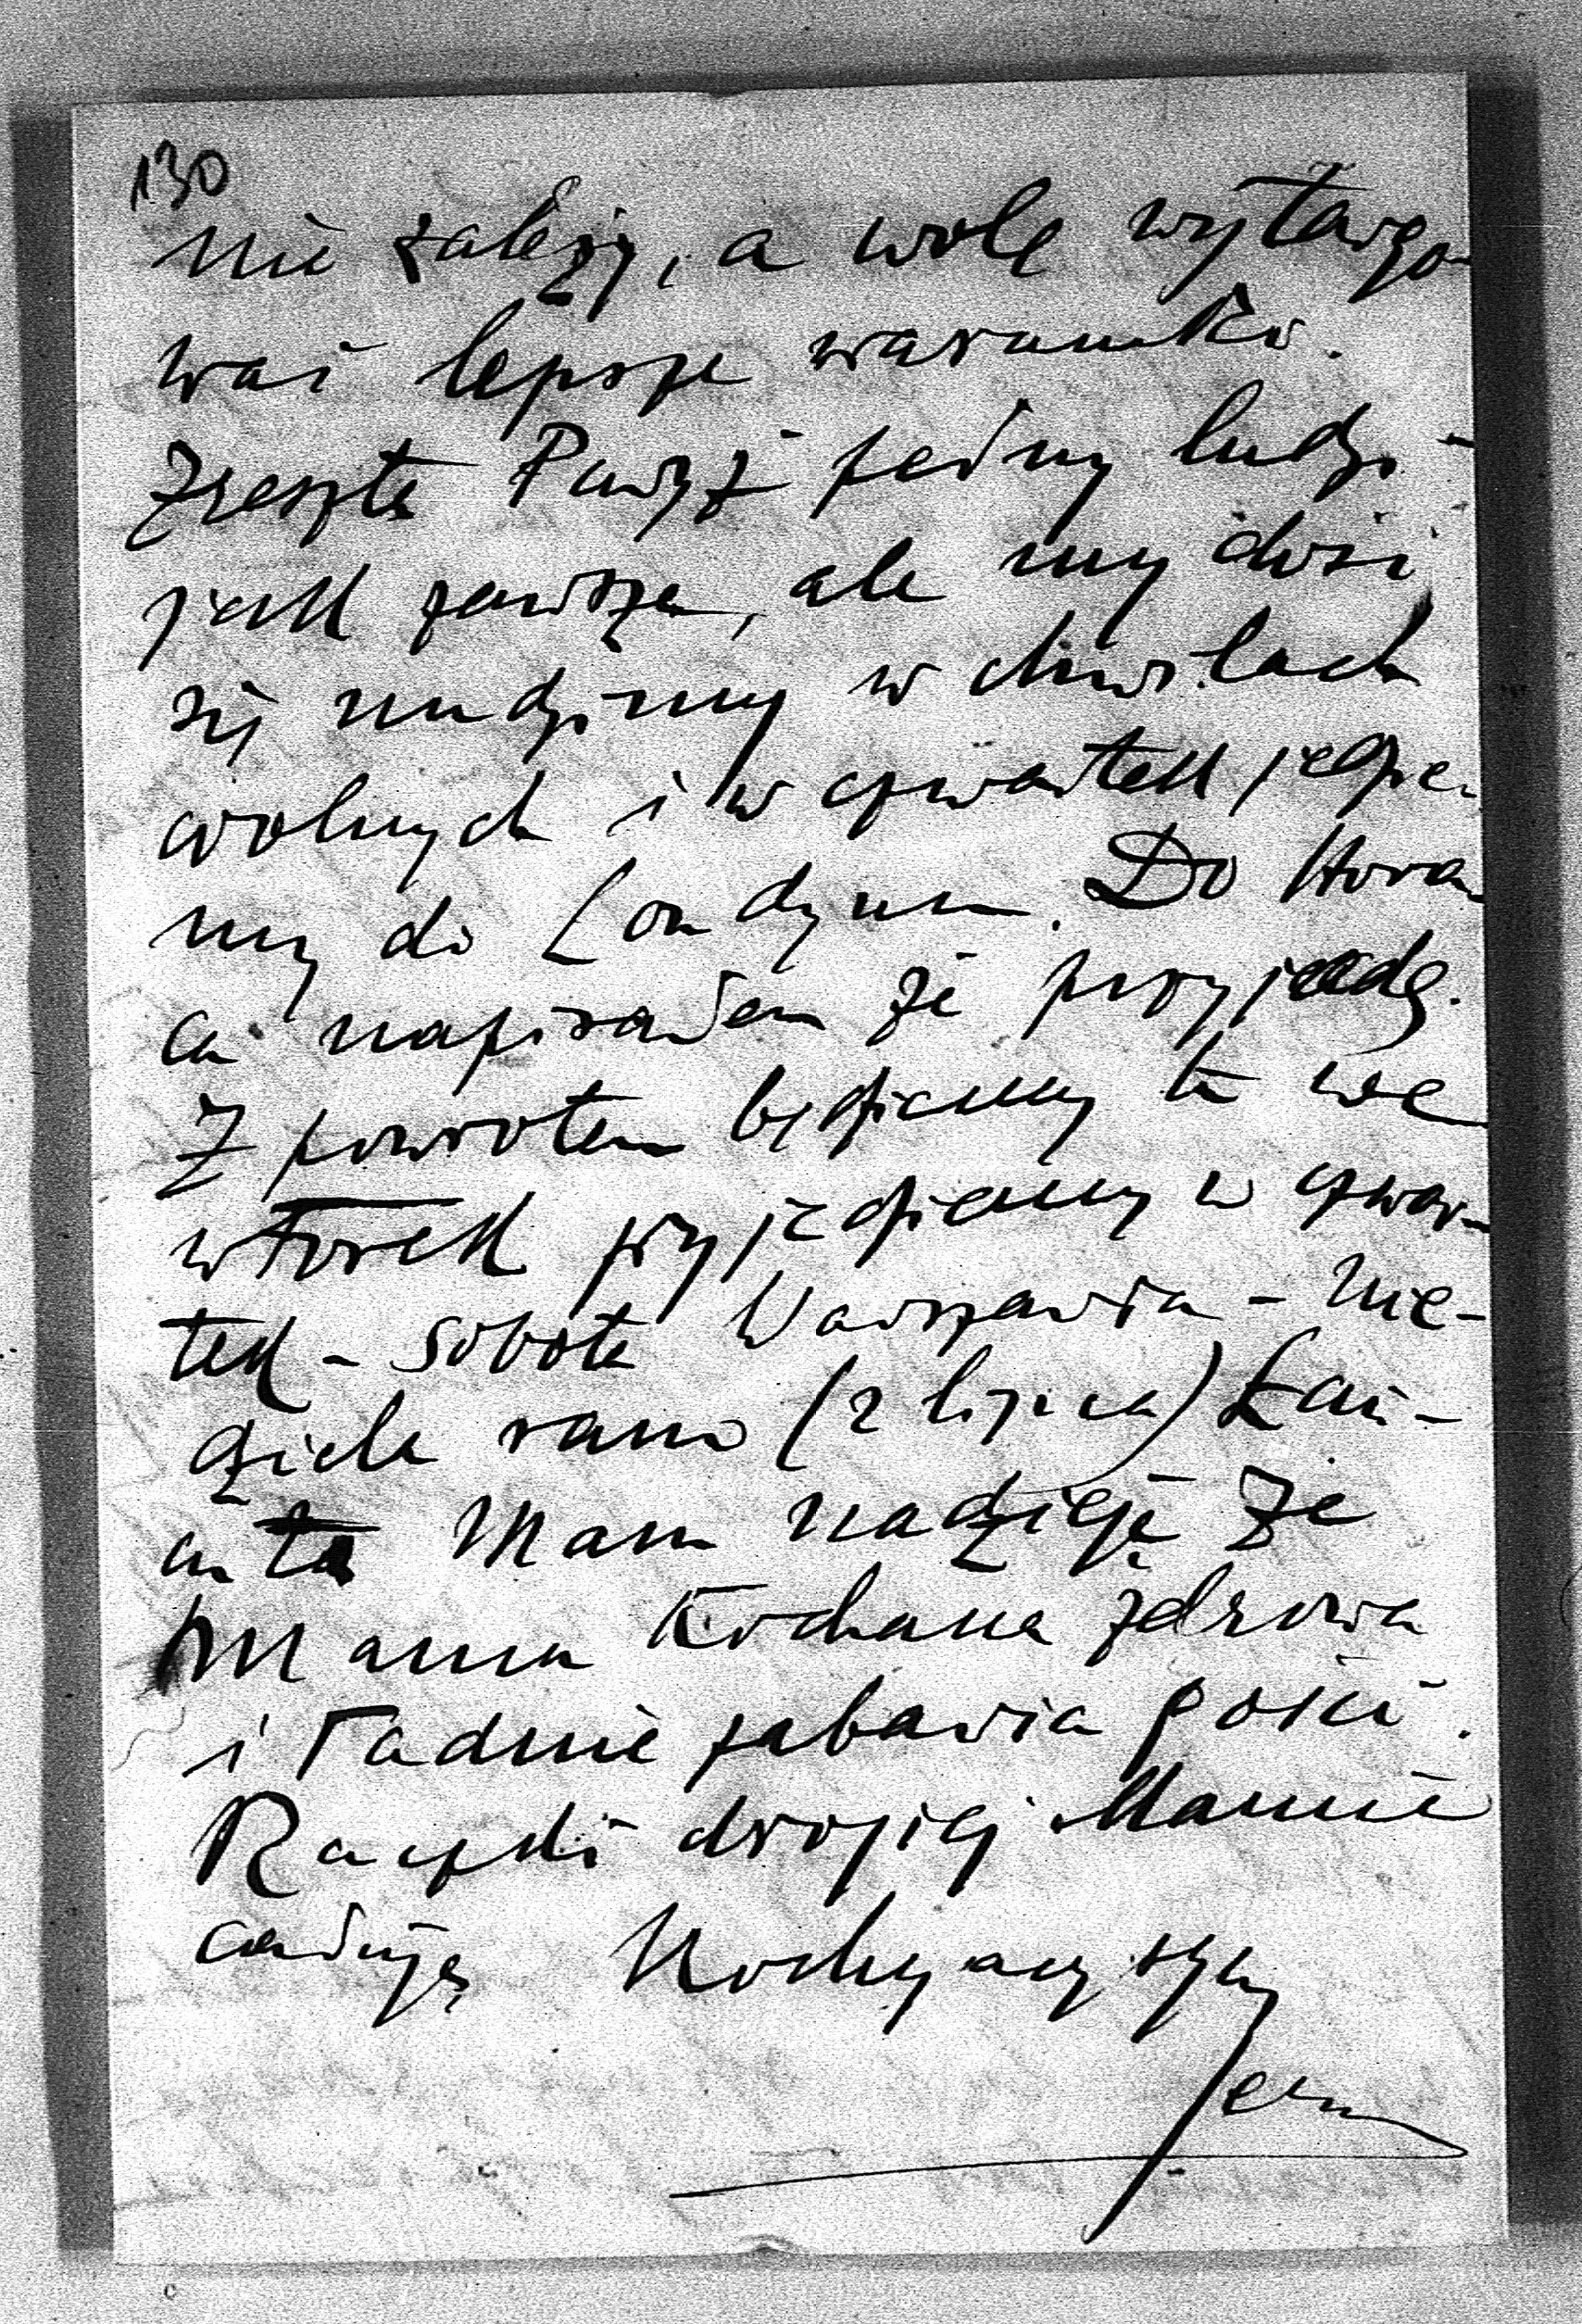 130
nie zależy, a wolę wytargo-
wać lepsze warunki.
Zresztą Paryż pełny ludzi -
jak zawsze, ale my dość
się nudzimy w chwilach
wolnych i w czwartek jedzie-
my do Londynu. Do Hora-
ca napisałem że przyjadę.
Z powrotem będziemy tu we
wtorek przyjedziemy w czwar-
tek - sobota Warszawa - Nie-
dziela rano (2 lipca) Łań-
cuta Mam nadzieję że
Mama kochana zdrowa
i ładnie zabawia gości.
Rączki drogiej Mamie
całuję Kochający syn